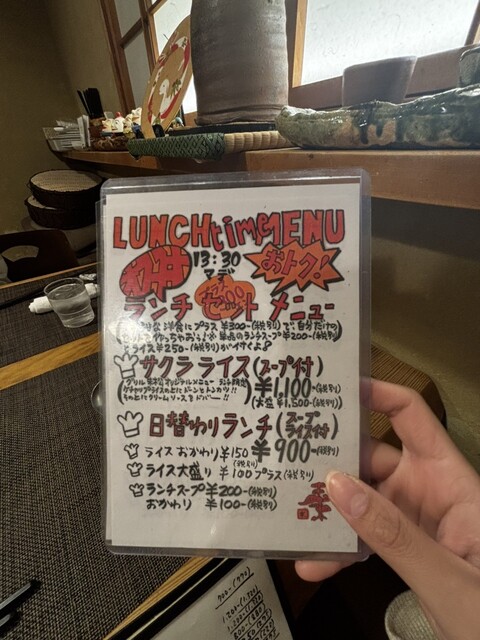 LUNCHtimeMENU
13:30
マデ
おトク!
ランチ セット メニュー
洋食にプラス ¥300-(税別)で、自分だけの
単品のランチスープ¥200-(税別)
ライス¥250-(税別)
サクラライス(スープ付)
オリジナルメニュー
ケチャップライスの上にドーンとトンカツ!!
その上にクリームソースをドバー!!
¥1,100-(税別)
(大盛 ¥1,500-(税別)
日替わりランチ(スープ ライス付)
¥900-(税別)
ライスおかわり¥150
(税別)
ライス大盛り ¥100プラス(税別)
ランチスープ¥200-(税別)
おかわり ¥100-(税別)